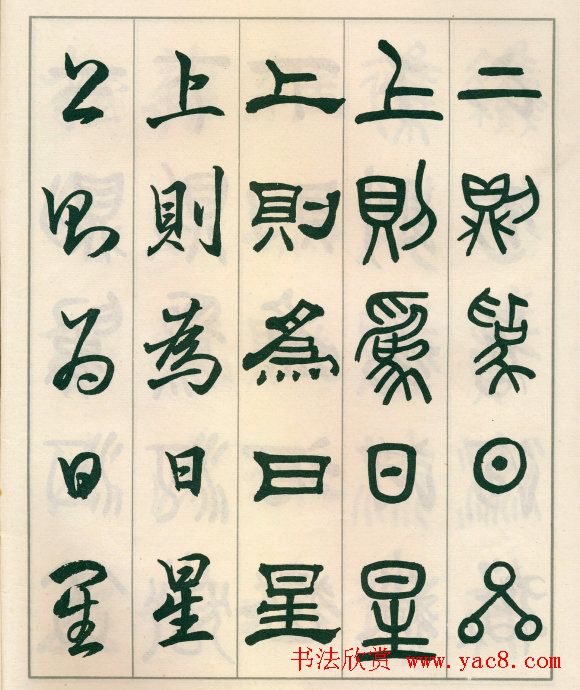 上則為日星
上則爲日星
上則為日星
上則為日星
上則為日星
书法欣赏 www.yac8.com